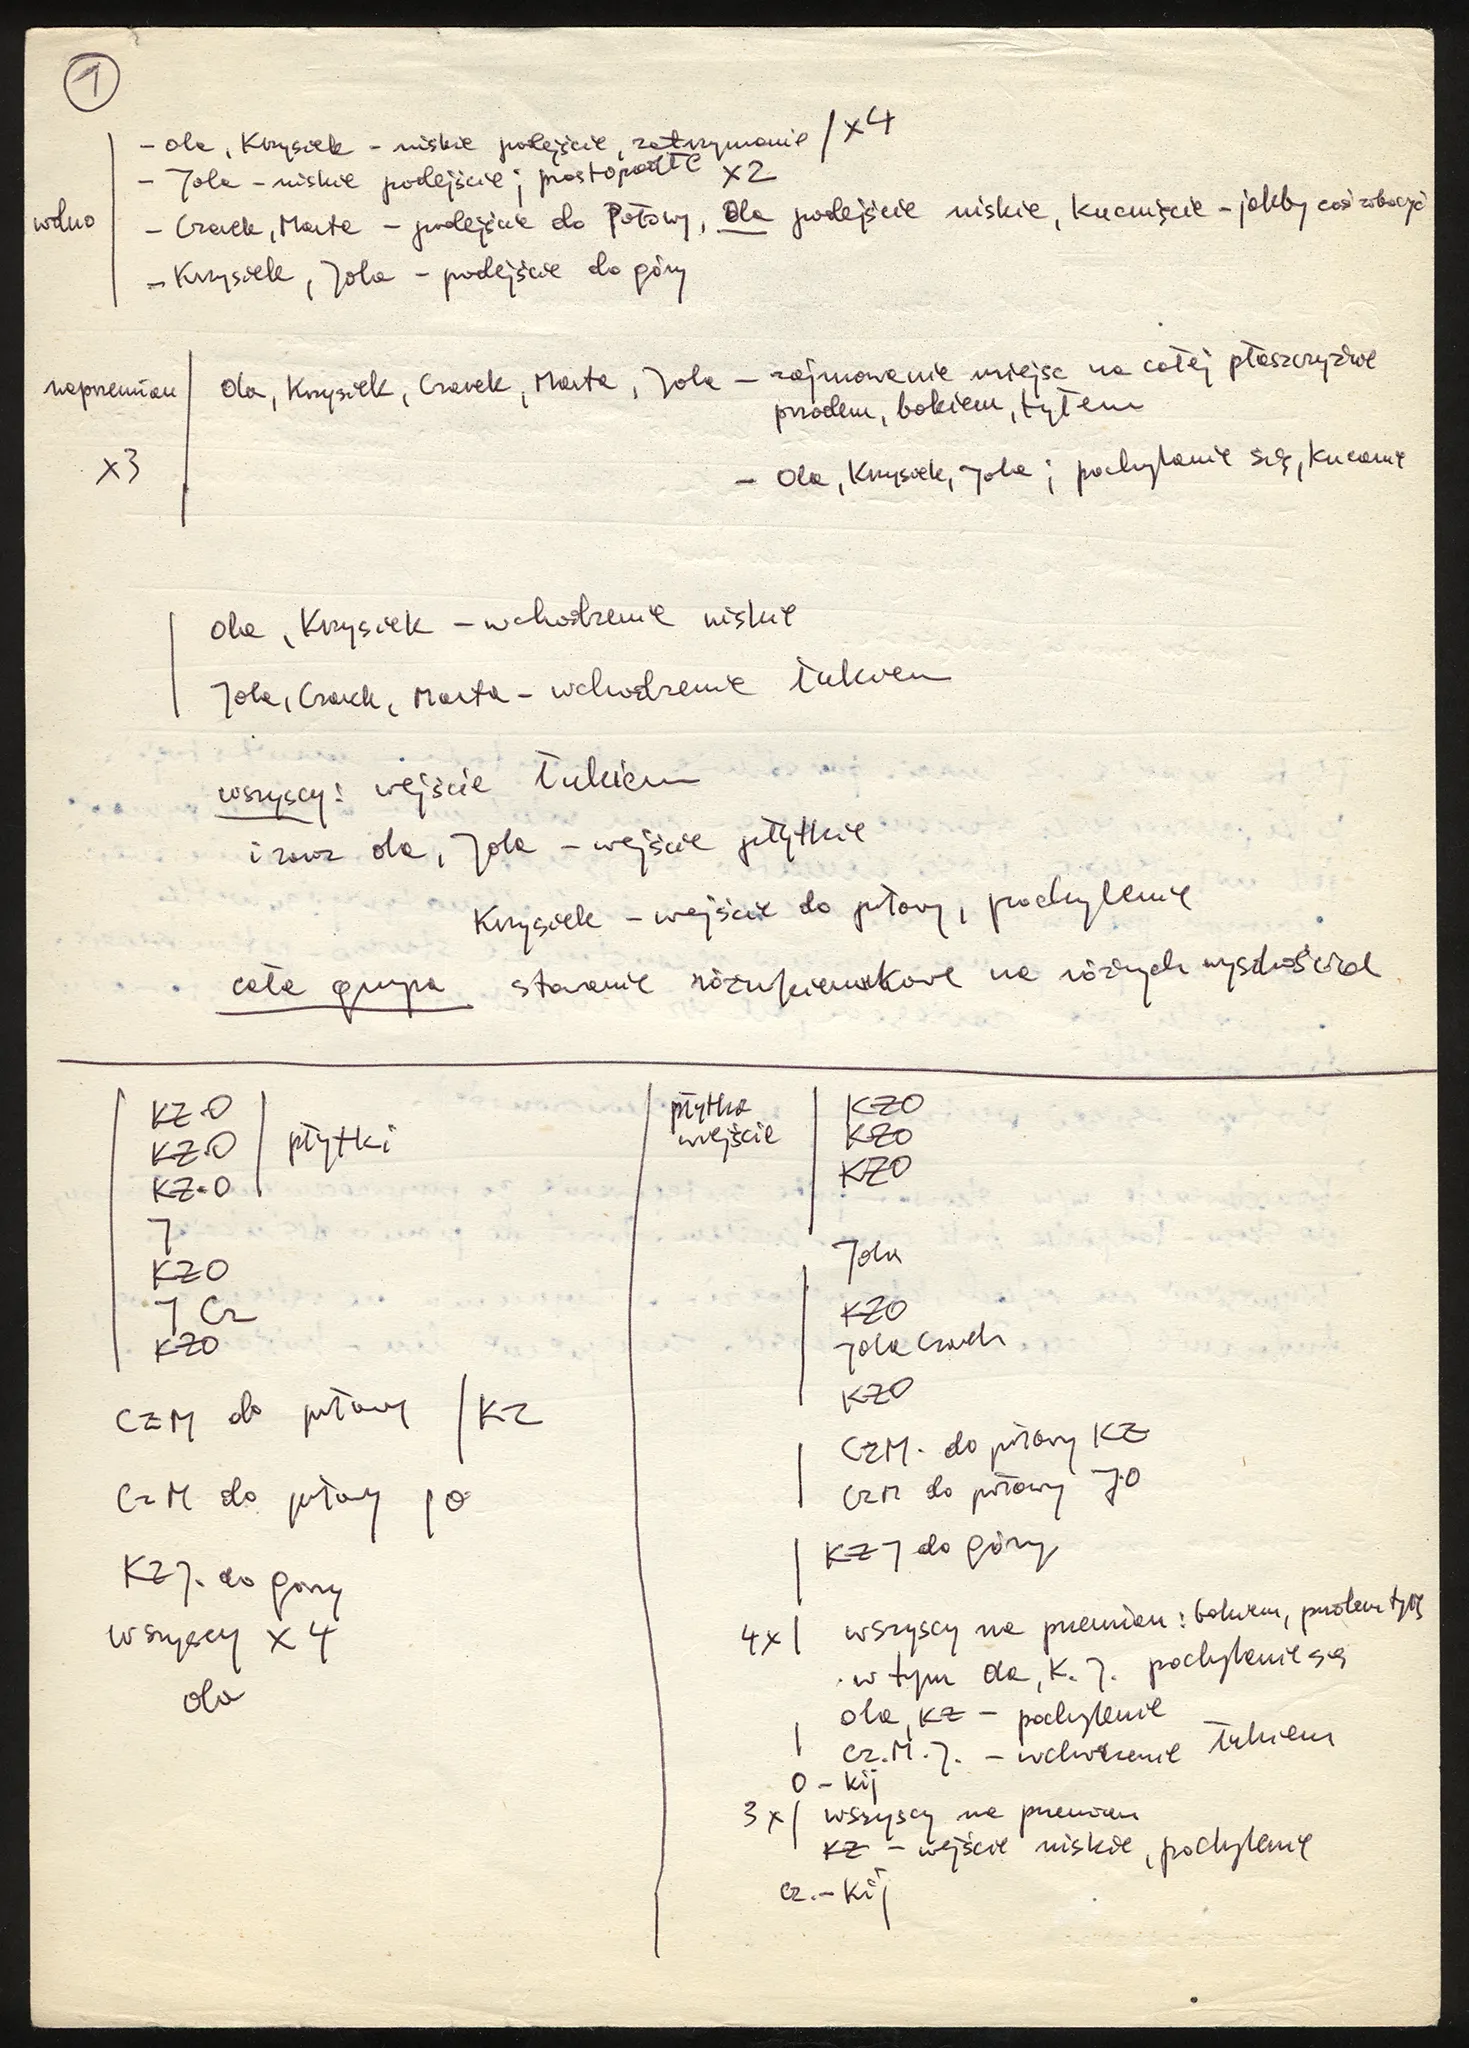 1
- Ola, Krzysiek - niskie podejście, zatrzymanie / x4
- Jola - niskie podejście; prostopadłe x2
wolno
- Czarek, Marta - podejście do połowy, Ola podejście niskie, kucnięcie - jakby coś zobaczyć
- Krzysiek, Jola - podejście do góry
naprzemian
Ola, Krzysiek, Czarek, Marta, Jola - zajmowanie miejsc na całej płaszczyźnie
przodem, bokiem, tyłem
x3
- Ola, Krzysiek, Jola; pochylanie się, kucanie
Ola, Krzysiek - wchodzenie niskie
Jola, Czarek, Marta - wchodzenie łukiem
wszyscy: wejście łukiem
i zaraz Ola, Jola - wejście płytkie
Krzysiek - wejście do połowy, pochylenie
cała grupa stawanie różnokierunkowe na różnych wysokościach
KZ.O
KZ.O
KZ.O
płytki
J
KZO
J Cz
KZO
CZM do połowy / KZ
CzM do połowy JO
KZ J. do góry
wszyscy x 4
Ola
płytkie
wejście
KZO
KZO
KZO
Jola
KZO
Jola Czarek
KZO
CZM. do połowy KZ
CZM do połowy JO
KZ J do góry
4x wszyscy na przemian: bokiem, przodem tyłem
w tym Ola, K. J. pochylanie się
Ola, KZ - pochylenie
Cz.M.J. - wchodzenie łukiem
O - kij
3x wszyscy na przemian
KZ - wejście niskie, pochylenie
Cz. - kij